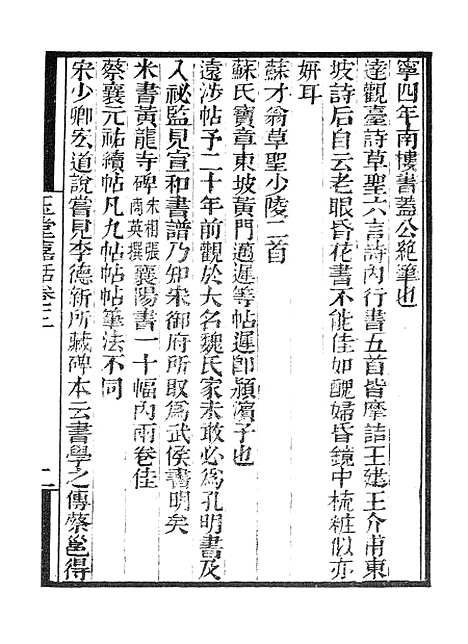 寧四年南樓書蓋公絶筆也
達觀臺詩草聖六言詩内行書五首皆摩詰王建王介甫東
坡詩后自云老眼昏花書不能佳如醜婦昏鏡中梳粧似亦
妍耳
蘇才翁草聖少陵二首
蘇氏寶章東坡黄門邁遲等帖遲即潁濱子也
遠涉帖予二十年前觀於大名魏氏家未敢必爲孔明書及
入祕監見宣和書譜乃知宋御府所取爲武侯書明矣
米書黄龍寺碑宋相張商英撰襄陽書一十幅内雨卷佳
蔡襄元祐續帖凡九帖帖帖筆法不同
宋少卿宏道說嘗見李德新所藏碑本云書學之傳蔡邕得
玉堂嘉話卷三
二